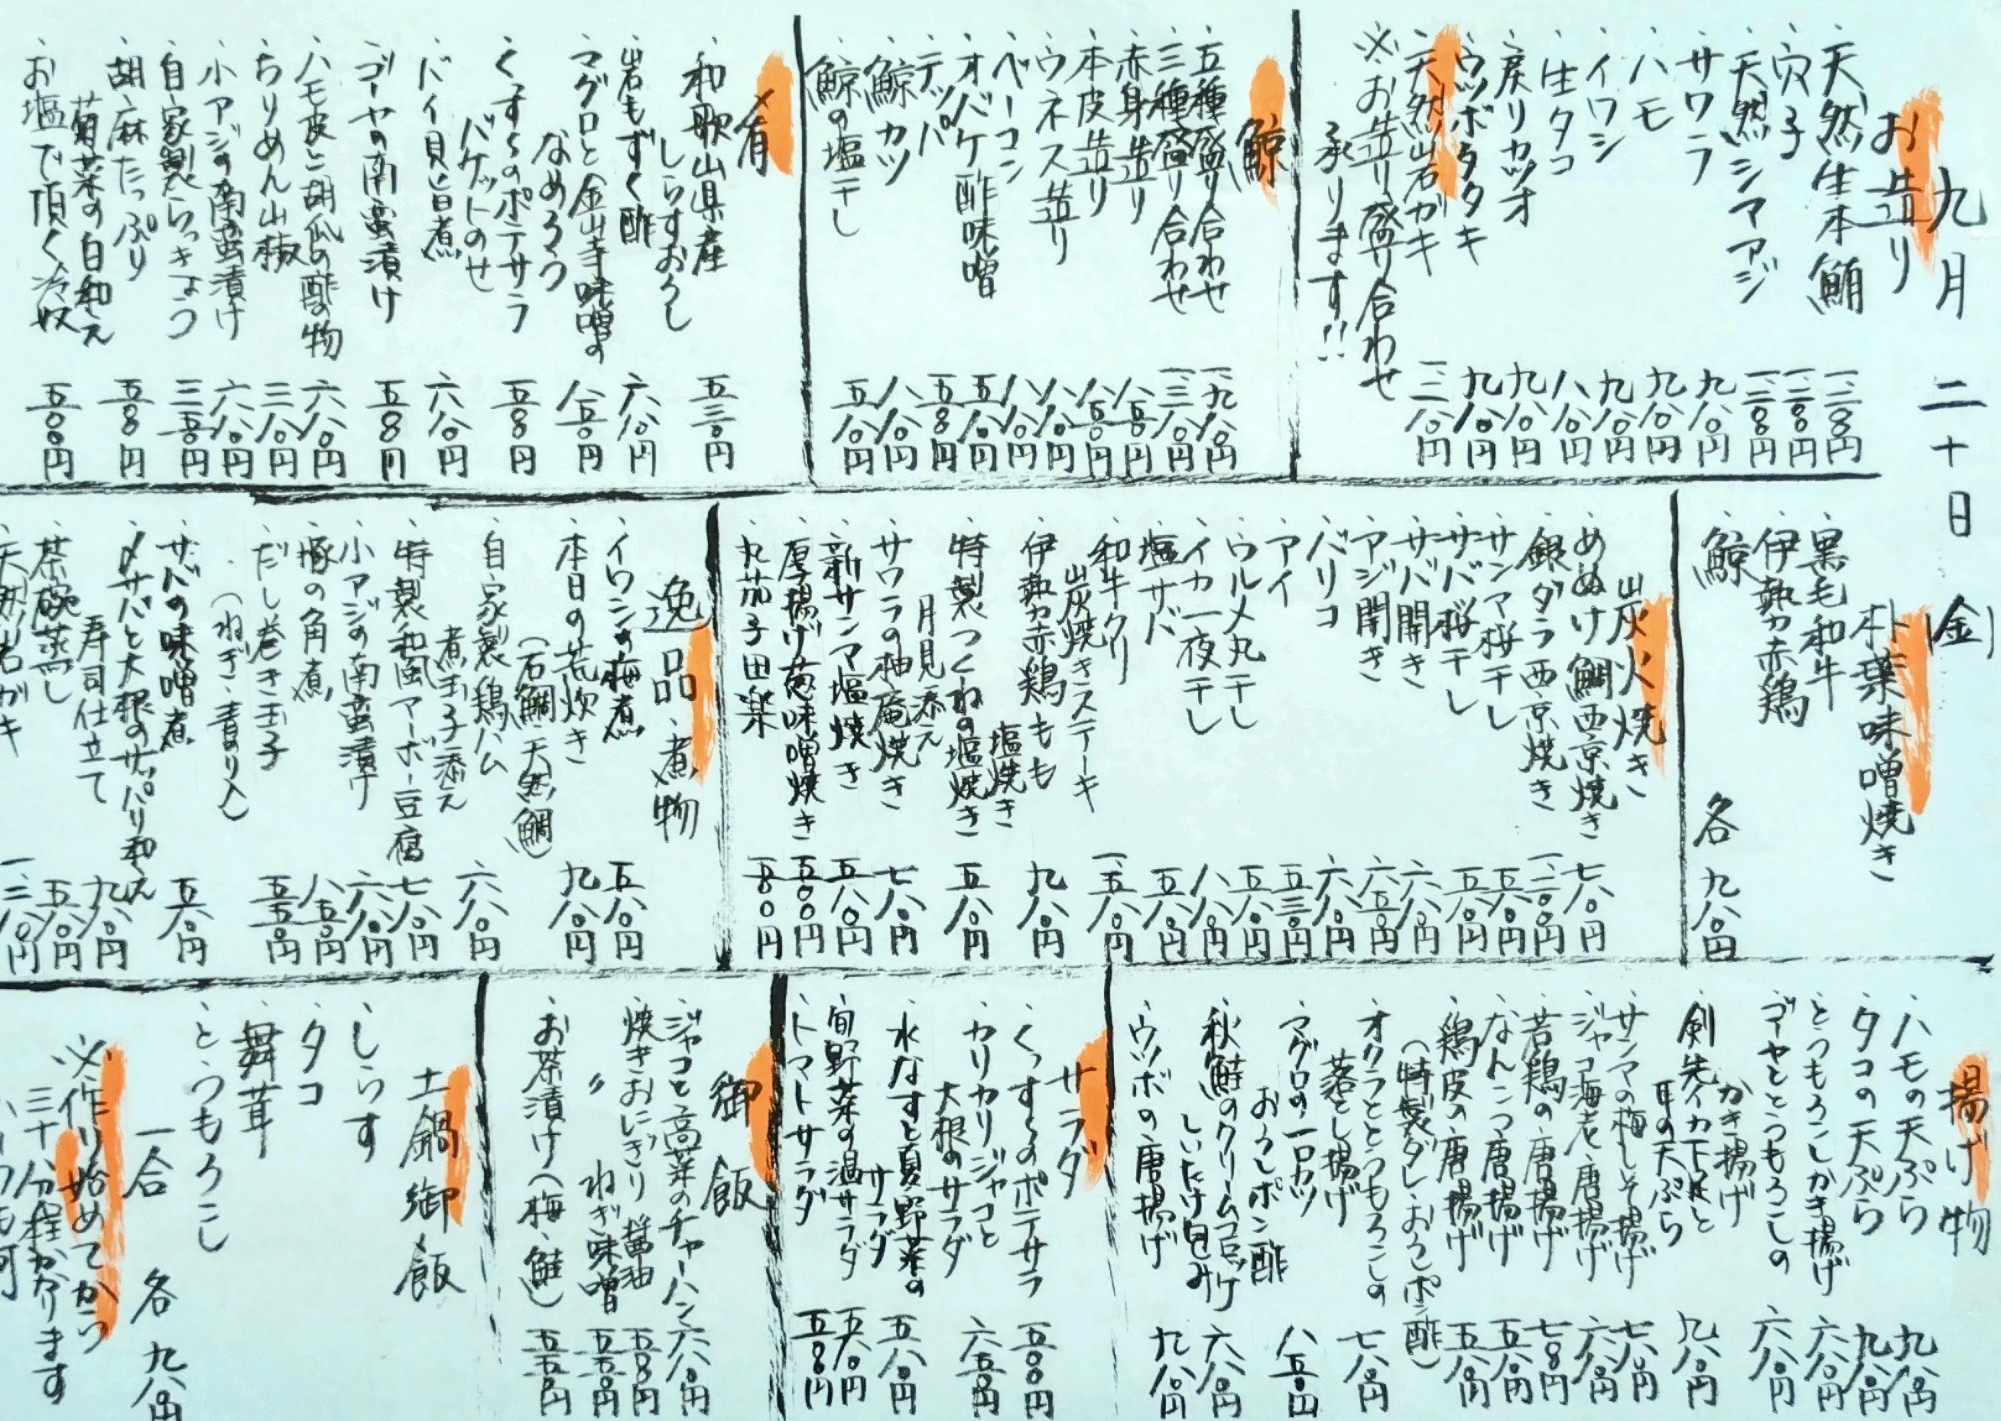 九月二十日(金)
お造り
・天然生本鮪 一、二八〇円
・穴子 一、二八〇円
・天然シマアジ 一、二八〇円
・サワラ 九八〇円
・ハモ 九八〇円
・イワシ 九八〇円
・生タコ 八八〇円
・戻りカツオ 九八〇円
・ウツボタタキ 九八〇円
・天然岩ガキ 一、三八〇円
※お造り盛り合わせ
承ります!!
鯨
・五種盛り合わせ 一、九八〇円
・三種盛り合わせ 一、三八〇円
・赤身造り 八五〇円
・本皮造り 八五〇円
・ウネス造り 八八〇円
・ベーコン 八八〇円
・オバケ酢味噌 五八〇円
・テッパ 五八〇円
・鯨カツ 八八〇円
・鯨の塩干し 五八〇円
肴
・和歌山県産
しらすおろし 五三〇円
・岩もずく酢 六八〇円
・マグロと金山寺味噌の
なめろう 八五〇円
・くずしのポテサラ
バケットのせ 五八〇円
・バイ貝旨煮 六八〇円
・ゴーヤの南蛮漬け 五八〇円
・ハモ皮と胡瓜の酢の物 六八〇円
・ちりめん山椒 三八〇円
・小アジの南蛮漬け 六八〇円
・自家製らっきょう 三五〇円
・胡麻たっぷり
菊菜の白和え 五八〇円
・お塩で頂く冷奴 五〇〇円
朴葉味噌焼き
・黒毛和牛
・伊勢赤鶏
・鯨
各九八〇円
炭火焼き
・めぬけ鯛西京焼き 七八〇円
・銀ダラ西京焼き 一、二〇〇円
・サンマ桜干し 五八〇円
・サバ桜干し 五八〇円
・サバ開き 六八〇円
・アジ開き 六五〇円
・バリコ 六八〇円
・アイ 五三〇円
・ウルメ丸干し 五八〇円
・イカ一夜干し 八八〇円
・塩サバ 五八〇円
・和牛クリ
炭焼きステーキ 一、五八〇円
・伊勢赤鶏もも
塩焼き 九八〇円
・特製つくねの塩焼き
月見添え 五八〇円
・サワラの柚庵焼き 七八〇円
・新サンマ塩焼き 五八〇円
・厚揚げ葱味噌焼き 五〇〇円
・丸茄子田楽 五八〇円
逸品・煮物
・イワシの梅煮 五八〇円
・本日の荒炊き
(石鯛、天然鯛) 九八〇円
・自家製鶏ハム
煮玉子添え 六八〇円
・特製和風マーボー豆腐 七八〇円
・小アジの南蛮漬け 六八〇円
・豚の角煮 八五〇円
・だし巻き玉子
(ねぎ・青のり入) 五五〇円
・サバの味噌煮 五八〇円
・〆サバと大根のサッパリ和え
寿司仕立て 九八〇円
・茶碗蒸し 五八〇円
・天然岩ガキ 一、三八〇円
揚げ物
・ハモの天ぷら 九八〇円
・タコの天ぷら 九八〇円
・とうもろこしかき揚げ 六八〇円
・ゴーヤととうもろこしの
かき揚げ 六八〇円
・剣先イカ下足と
耳の天ぷら 九八〇円
・サンマの梅しそ揚げ 七八〇円
・ジャコ海老唐揚げ 六八〇円
・若鶏の唐揚げ 七八〇円
・なんこつ唐揚げ 五八〇円
・鶏皮の唐揚げ 五八〇円
(特製ダレ・おろしポン酢)
・オクラととうもろこしの
落とし揚げ 七八〇円
・マグロの一口カツ
おろしポン酢 八五〇円
・秋鮭のクリームコロッケ
しいたけ包み 六八〇円
・ウツボの唐揚げ 九八〇円
サラダ
・くずしのポテサラ 五〇〇円
・カリカリジャコと
大根のサラダ 六五〇円
・水なすと夏野菜の
サラダ 五八〇円
・旬野菜の温サラダ 五八〇円
・トマトサラダ 五八〇円
御飯
・ジャコと高菜のチャーハン 六八〇円
・焼きおにぎり 醤油 五五〇円
〃 ねぎ味噌 五五〇円
・お茶漬け(梅、鮭) 五五〇円
土鍋御飯
・しらす
・タコ
・舞茸
・とうもろこし
一合 各九八〇円
※作り始めてから
三十分程かかります